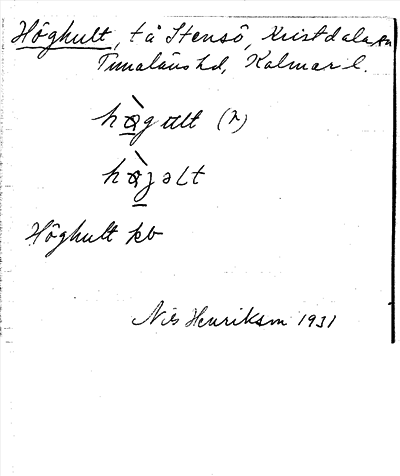 Höghult, tå Stensö, Kristdala sn
Tunaläns hd, Kalmar l.
Höghult kb
Nils Henriksson 1931